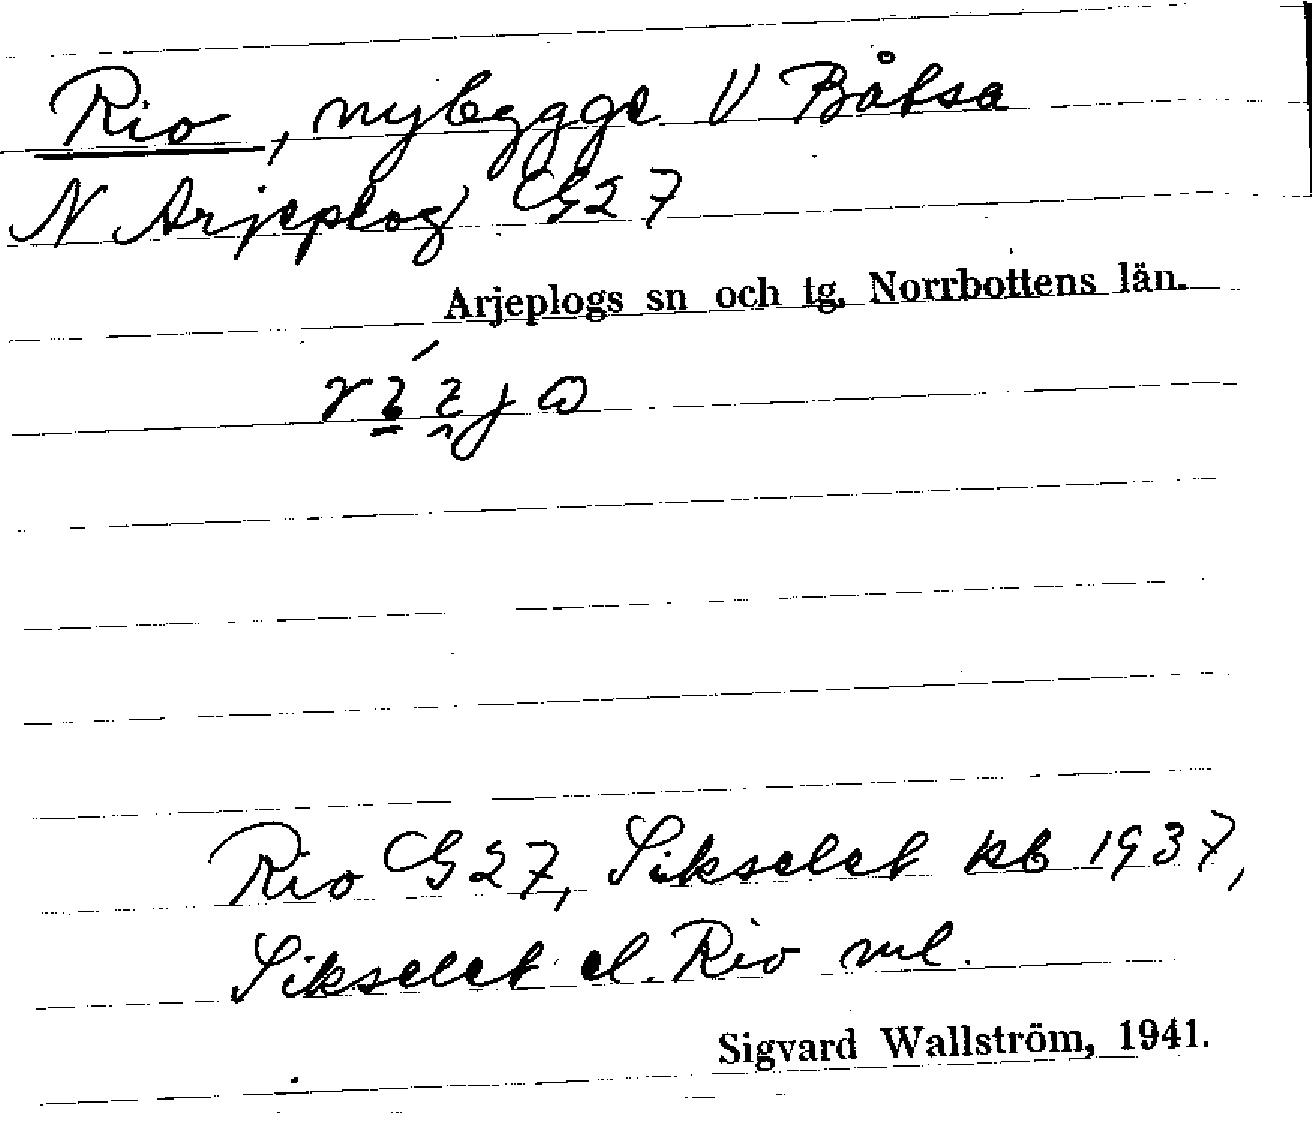 Rio, nybygge V Båtsa
N Arjeplog G27
Arjeplogs sn och tg. Norrbottens län.
Rio G27, Sikselet kb 1937,
Sikselet el. Rio ml.
Sigvard Wallström, 1941.